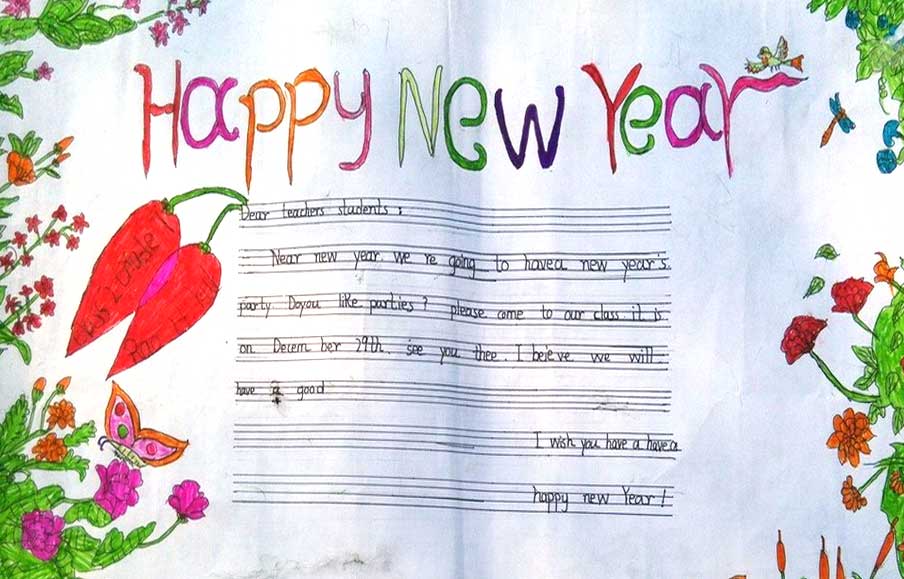 Happy New Year
Dear teachers students :
Near new year. we re going to havea new year's
party Doyou like parties? please come to our class. it is
on Decem ber 29th. see you thee. I beieve we will
have a good
I wish you have a have a
happy new Year!